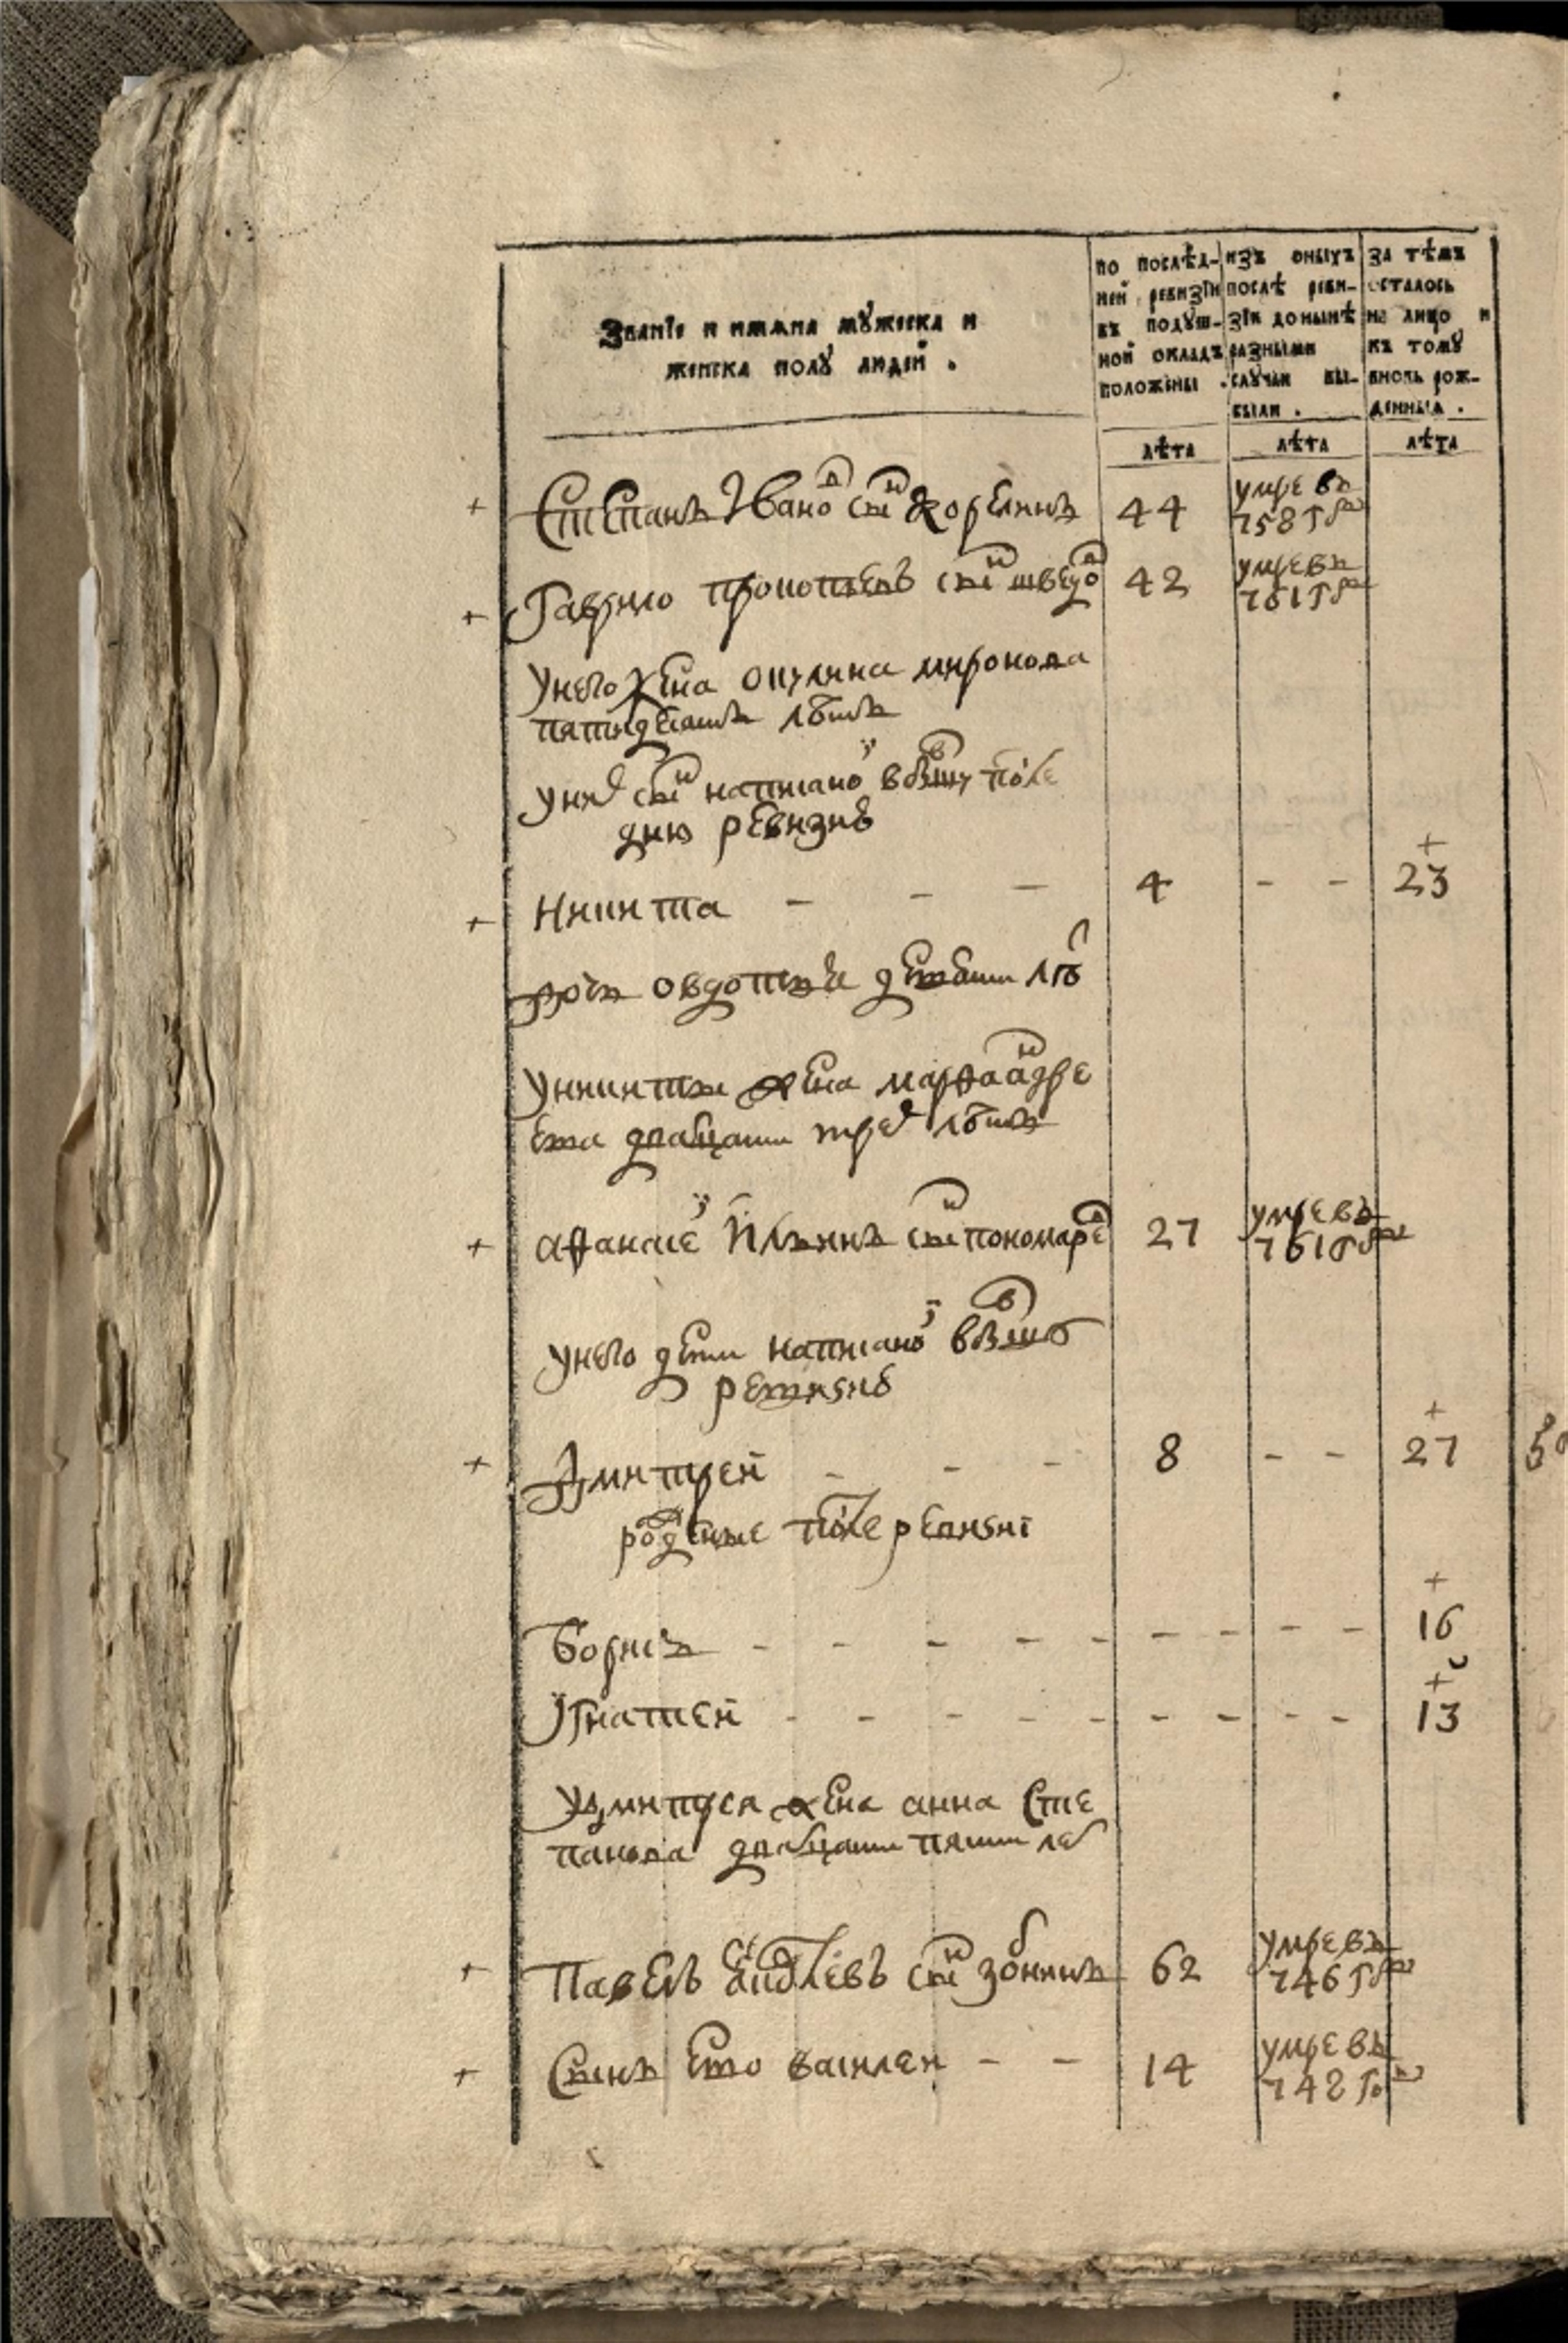 Званїе и имѧна мꙋжеска и
женска полꙋ людей .
по послѣд-
ней ревизїи
въ подꙋш-
ной окладъ
положены .
изъ оныхъ
послѣ реви-
зїи донынѣ
разными
случаи вы-
были .
за тѣмъ
осталось
на лицо и
къ томꙋ
вновь рож-
денныѧ .
лѣта лѣта лѣта
Степанъ Ивановъ сынъ Корелинъ 44 умре въ
758 году
Гаврило Прокопьевъ сынъ шведовъ 42 умре въ
761 году
у него жена окулина миронова
пятидесятъ лѣтъ
у них сынъ написаной в бывшую после
днюю ревизию
Никита - - - 4 - - 23
дочь овдотья девети лѣт
у никиты жена марфа андре
ева дватцати трех лѣтъ
афанасей Ильинъ сынъ пономарев 27 умре въ
761 году
у него дети написаной в бывшую
ревизию
Дмитрей - - - 8 - - 27
рожденые после ревизиі
Борисъ - - - - - - - - - 16
Игнатей - - - - - - - - - 13
у дмитрея жена анна Сте
панова дватцати пяти лет
Павелъ сынъ 62 умре въ
746 году
Сынъ ево василеи - - 14 умре въ
742 году